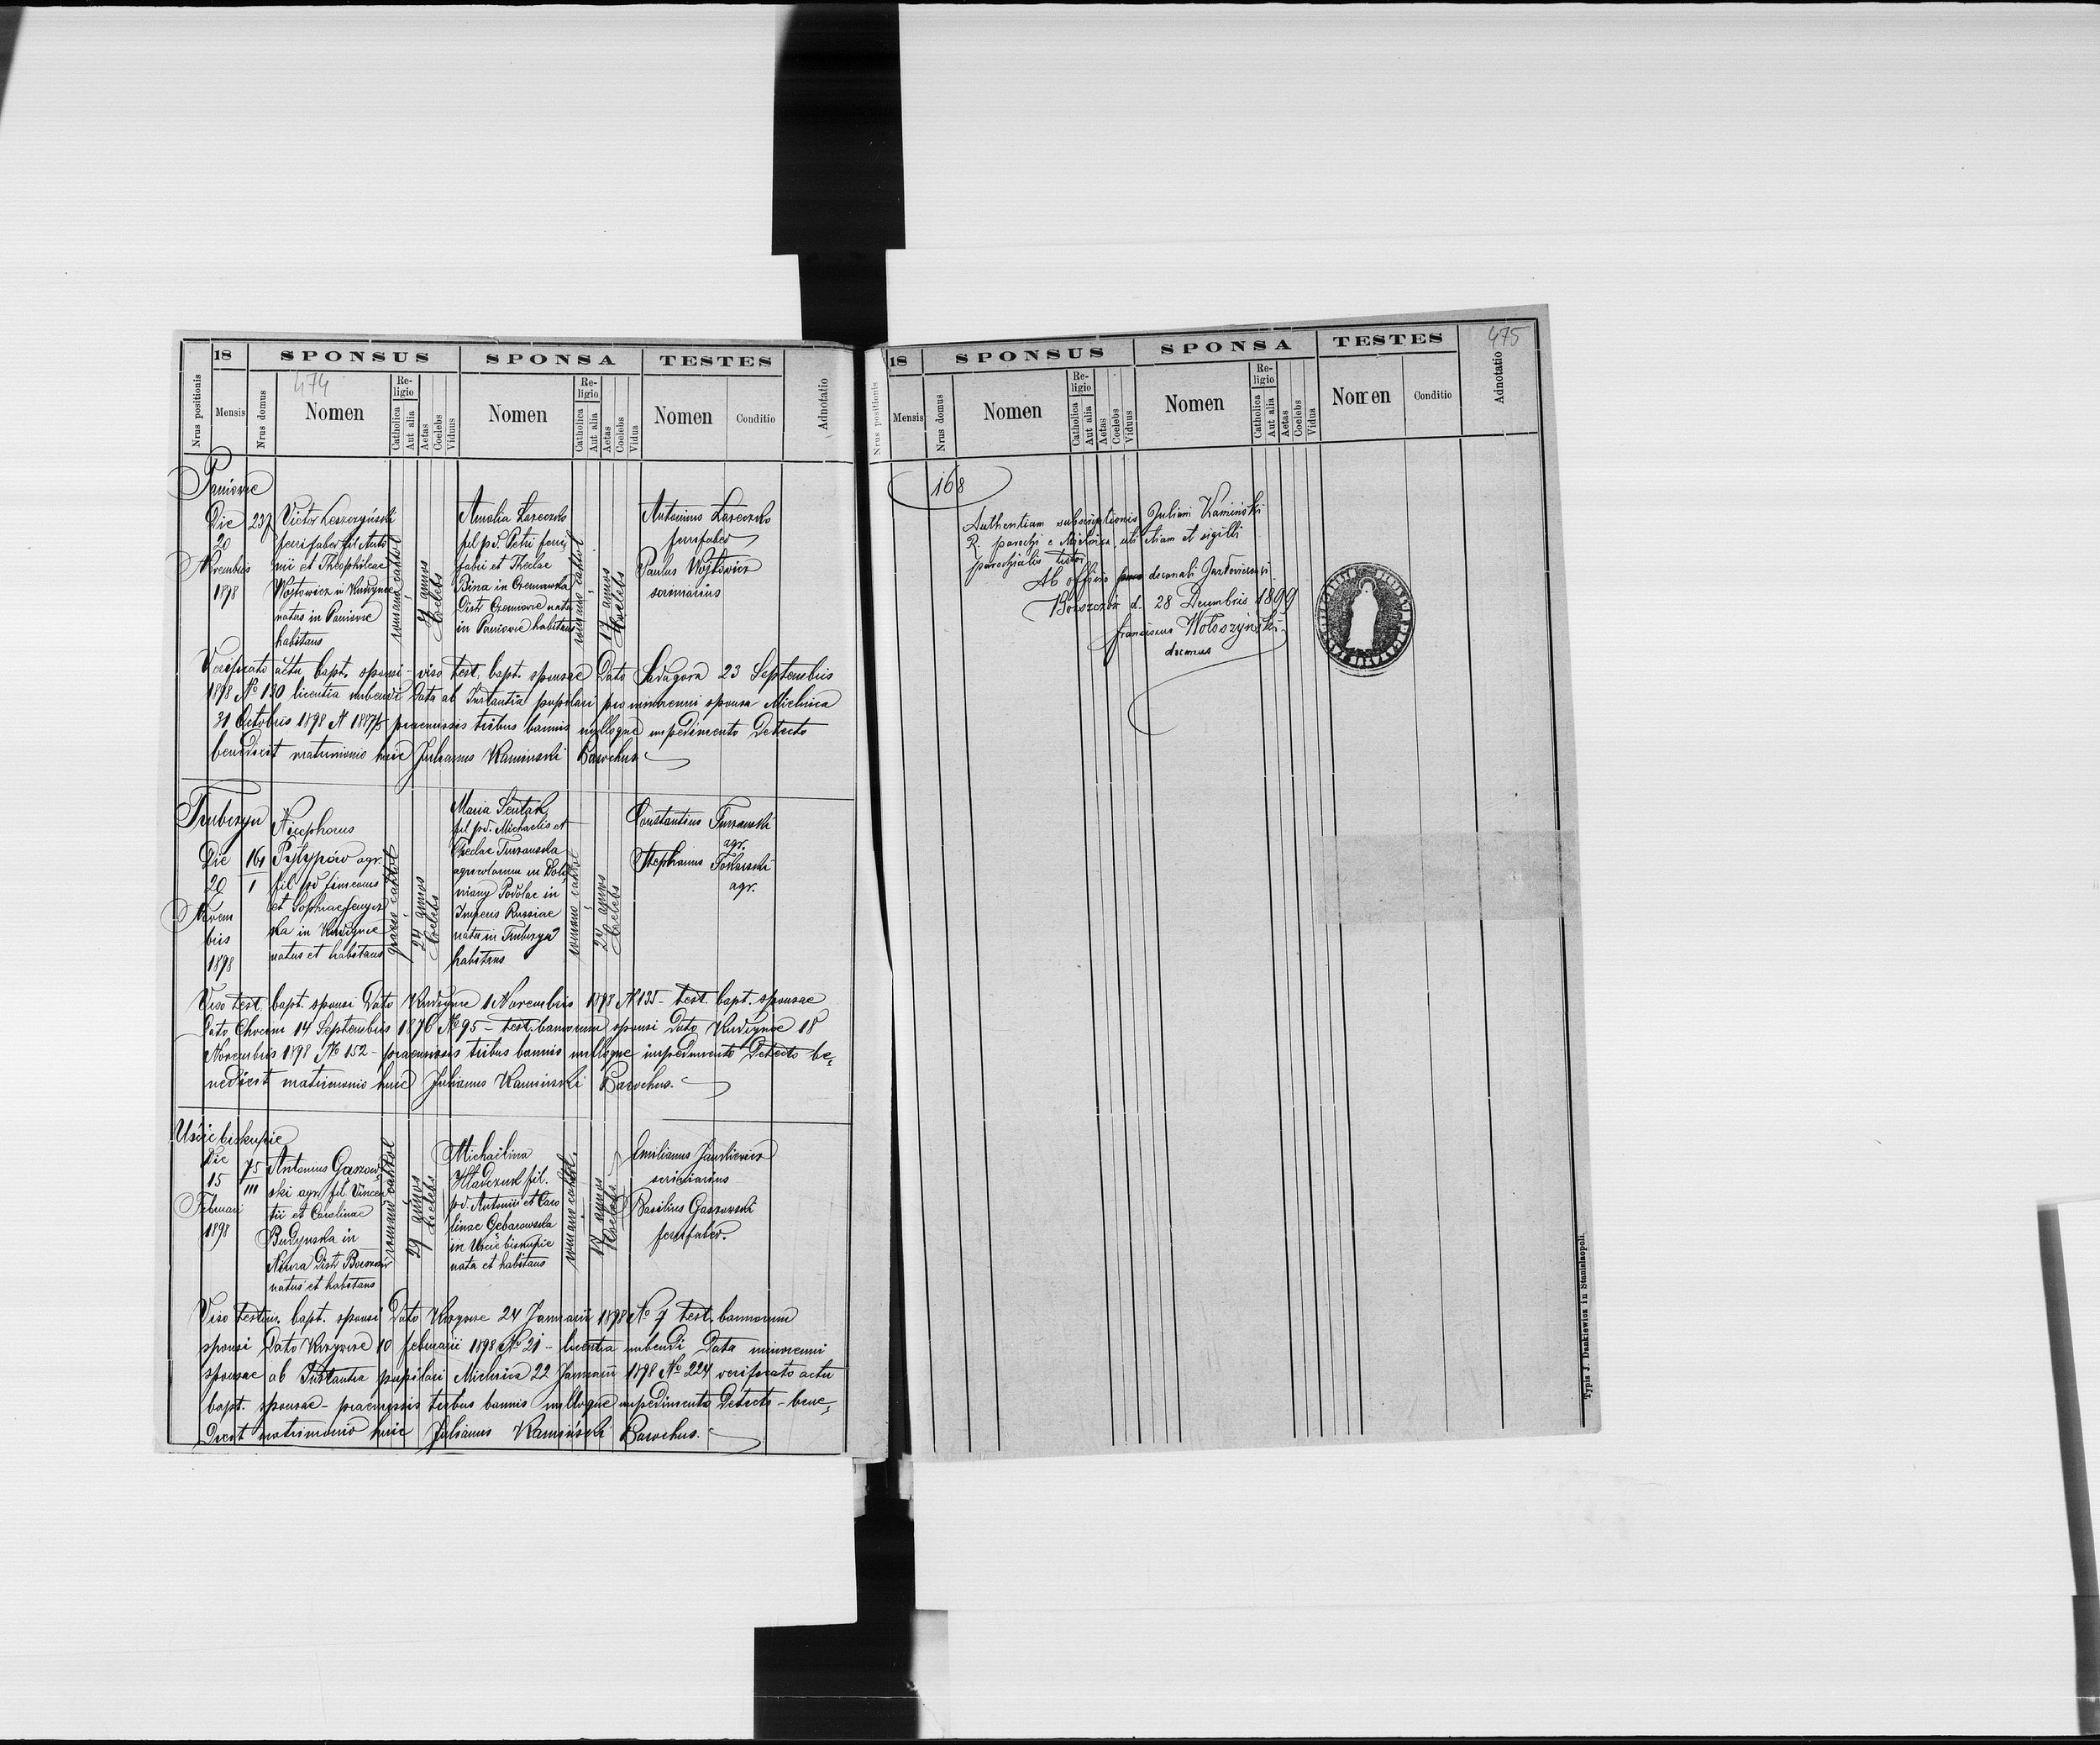 474
18 SPONSUS SPONSA TESTES
Nrus positionis Mensis Nrus domus Nomen Religio Catholica Aut alia Aetas Coelebs Viduus Nomen Religio Catholica Aut alia Aetas Coelebs Vidua Nomen Conditio Adnotatio
Paniowce
Die
20
Novembris
1898
237
Victor Leszczyński
ferrifaber fil. Anto
nii et Theophileae
Wojtowicz in Kudrynce
natus in Paniowce
habitans
romano cathol
27 annos
Coelebs
Amalia
fil pd. Petri ferri
fabri et Theclae
Bina in
Distr nata
in Paniowce habitans
romano cathol
17 annos
Coelebs
Antonius
ferrifaber
Paulus Wojtowicz
scriniarius
Verificato actu bapt. sponsi - viso test. bapt. sponsae Dato Sadagora 23 Septembris
1898 No 130 licentia nubendi Data ab Instantia pupilari pro minorenni sponsa Mielnica
31 Octobris 1898 praemissis tribus bannis nulloque impedimento Detecto
benedixit matrimonio huic Julianus Kaminski Parochus
Trubczyn
Die
20
Novem
bris
1898
161
I
Nicephorus
Pylypów agr.
fil pd Simeonis
et Sophiae
in Kudrynce
natus et habitans
graeco cathol
24 annos
Coelebs
Maria
fil. pd. Michaelis et
Theclae Turzanska
agricolarum in
Podolae in
Imperio Russiae
nata in Trubczyn
habitans
romano cathol
24 annos
Coelebs
Constantinus Turzanski
agr.
Stephanus Tokarski
agr.
Viso test. bapt. sponsi Dato Kudrynce 1 Novembris 1898 N 135 - test. bapt. sponsae
Dato 14 Septembris 1876 No 95 - test. bannorum sponsi Dato Kudrynce 18
Novembris 1898 No 152 - praemissis tribus bannis nulloque impedimento Detecto be-
nedixit matrimonio huic Julianus Kaminski Parochus.
Uście biskupie
Die
15
Februari
1898
75
III
Antonius Gaszow
ski agr. fil Vincen
tii et Carolinae
Budynska in
Niwra Distr Borszczów
natus et habitans
romano cathol
29 annos
Coelebs
Michaëlina
Hladczuk fil.
pd. Antonii et Caro
linae Gebarowska
in Uście biskupie
nata et habitans
romano cathol.
17 annos
Coelebs
Emilianus Jankiewicz
scriniarius
Basilius Gaszowski
ferrifaber.
Viso testim. bapt. sponsi Dato Krzywcze 24 Januarii 1898 No 7 test. bannorum
sponsi Dato Krzywcze 10 februarii 1898 No 21 - licentia nubendi Data minorenni
sponsae ab Instantia pupilari Mielnica 22 Januarii 1898 No 224 verificato actu
bapt. sponsae - praemissis tribus bannis nulloque impedimento Detecto - bene-
dixit matrimonio huic Julianus Kamiński Parochus.
475
18 SPONSUS SPONSA TESTES
Nrus positionis Mensis Nrus domus Nomen Religio Catholica Aut alia Aetas Coelebs Viduus Nomen Religio Catholica Aut alia Aetas Coelebs Vidua Nomen Conditio Adnotatio
168
Authentiam subscriptionis Juliani Kamiński
R. parochi e Mielnica, uti etiam et sigilli
parochialis testor
Ab officio decanali
Borszczów d. 28 Decembris 1899
Franciscus Wołoszyński
decanus
Typis J. Dankiewicz in Stanislaopoli.